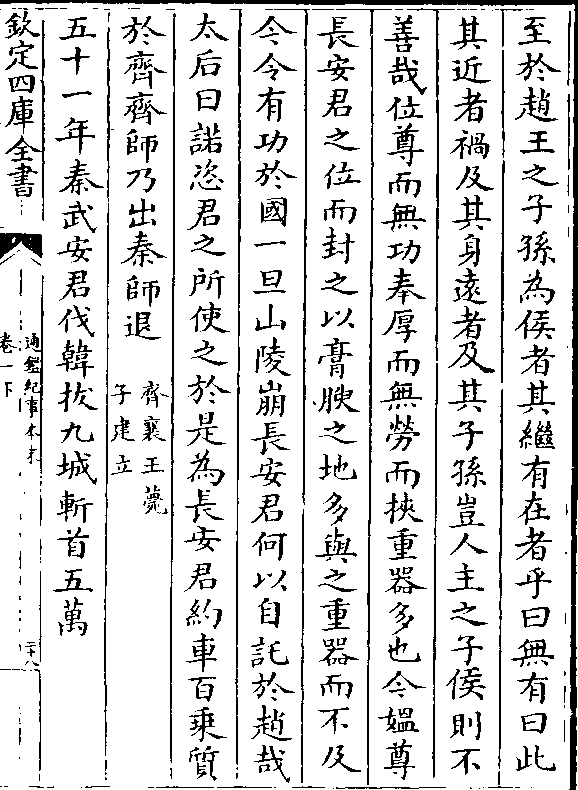 至於趙王之子孫為侯者其繼有在者乎曰無有曰此
其近者禍及其身遠者及其子孫豈人主之子侯則不
善哉位尊而無功奉厚而無勞而挾重器多也今媪尊
長安君之位而封之以膏腴之地多與之重器而不及
今令有功於國一旦山陵崩長安君何以自託於趙哉
太后曰諾恣君之所使之於是為長安君約車百乘質
於齊齊師乃出秦師退
齊襄王薨
子建立
五十一年秦武安君伐韓拔九城斬首五萬
欽定四庫全書
通鑑紀事本末
卷一下
二十八